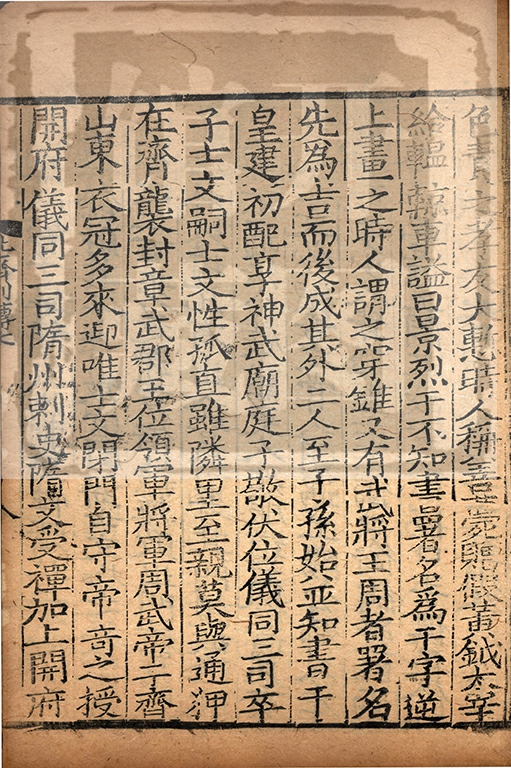 色責之孝友大慙時人稱善薨贈假黃鉞太宰
給轀輬車謚曰景烈干不知書署名為干字逆
上畫之時人謂之穿錐又有武將王周者署名
先為吉而後成其外二人至子孫始並知書干
皇建初配享神武廟庭子敬伏位儀同三司卒
子士文嗣士文性孤直雖隣里至親莫與通狎
在齊襲封章武郡王位領軍將軍周武帝平齊
山東衣冠多來迎唯士文閉門自守帝奇之授
開府儀同三司隋州刺史隋文受禪加上開府